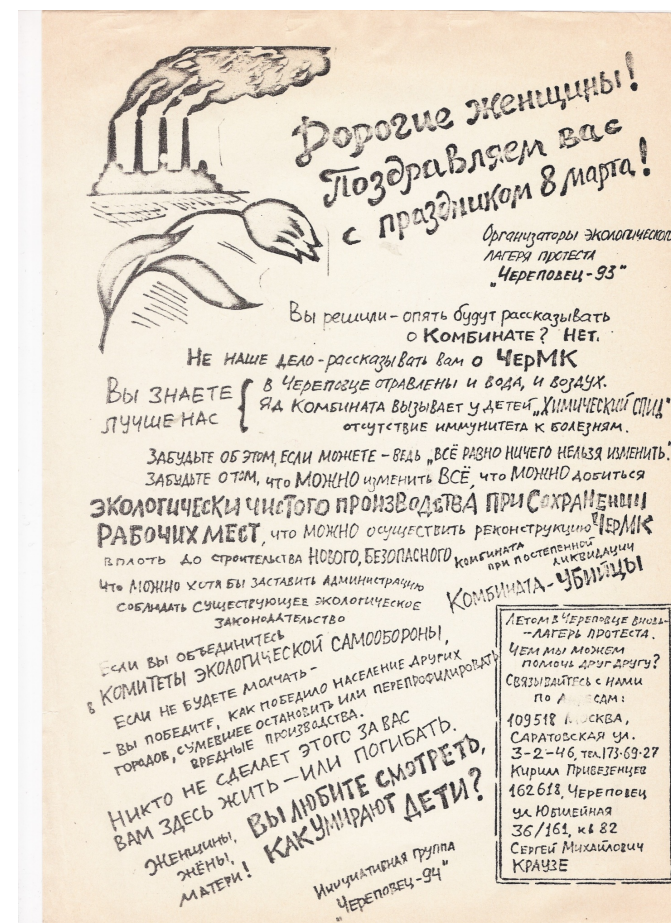 Дорогие женщины!
Поздравляем вас
с праздником 8 марта!
Организаторы экологического
лагеря протеста
„Череповец-93"
Вы решили – опять будут рассказывать
о Комбинате? Нет.
Не наше дело – рассказывать вам о ЧерМК
Вы знаете
лучше нас
в Череповце отравлены и вода, и воздух.
Яд Комбината вызывает у детей „ХИМИЧЕСКИЙ СПИД"
отсутствие иммунитета к болезням.
Забудьте об этом, если можете – ведь „всё равно ничего нельзя изменить."
Забудьте о том, что МОЖНО изменить ВСЁ, что МОЖНО добиться
ЭКОЛОГИЧЕСКИ ЧИСТОГО ПРОИЗВОДСТВА ПРИ СОХРАНЕНИИ
РАБОЧИХ МЕСТ, что МОЖНО осуществить реконструкцию ЧерМК
вплоть до строительства НОВОГО, БЕЗОПАСНОГО комбината
при постепенной
ликвидации
Комбината-УБИЙЦЫ
Что МОЖНО хотя бы заставить Администрацию
соблюдать существующее экологическое
законодательство
Если вы объединитесь
в КОМИТЕТЫ ЭКОЛОГИЧЕСКОЙ САМООБОРОНЫ,
Если не будете молчать –
– Вы победите, как победило население других
городов, сумевшее остановить или перепрофилировать
вредные производства.
Никто не сделает этого за вас
Вам здесь жить – или погибать.
Женщины,
жёны,
матери!
ВЫ ЛЮБИТЕ СМОТРЕТЬ,
КАК УМИРАЮТ ДЕТИ?
Инициативная группа
„Череповец-94"
Летом в Череповце вновь-
-лагерь протеста.
Чем мы можем
помочь друг другу?
Связывайтесь с нами
по
109518 Москва,
Саратовская ул.
3-2-46, тел.173-69-27
Кирилл Привезенцев
162618, Череповец
ул Юбилейная
36/161, кв 82
Сергей Михайлович
КРАУЗЕ